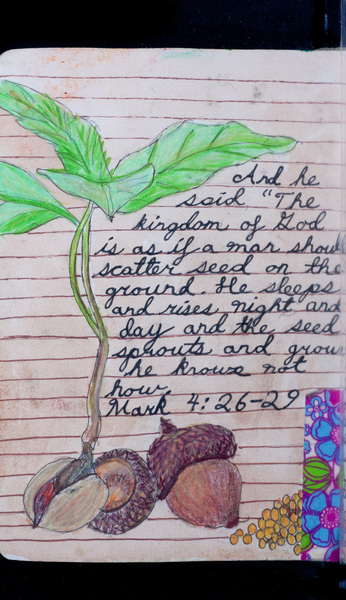 And he
said "The
kingdom of God
is as if a man should
scatter seed on the
ground. He sleeps
and rises night and
day and the seed
sprouts and grows
he knows not
how.
Mark 4:26-29